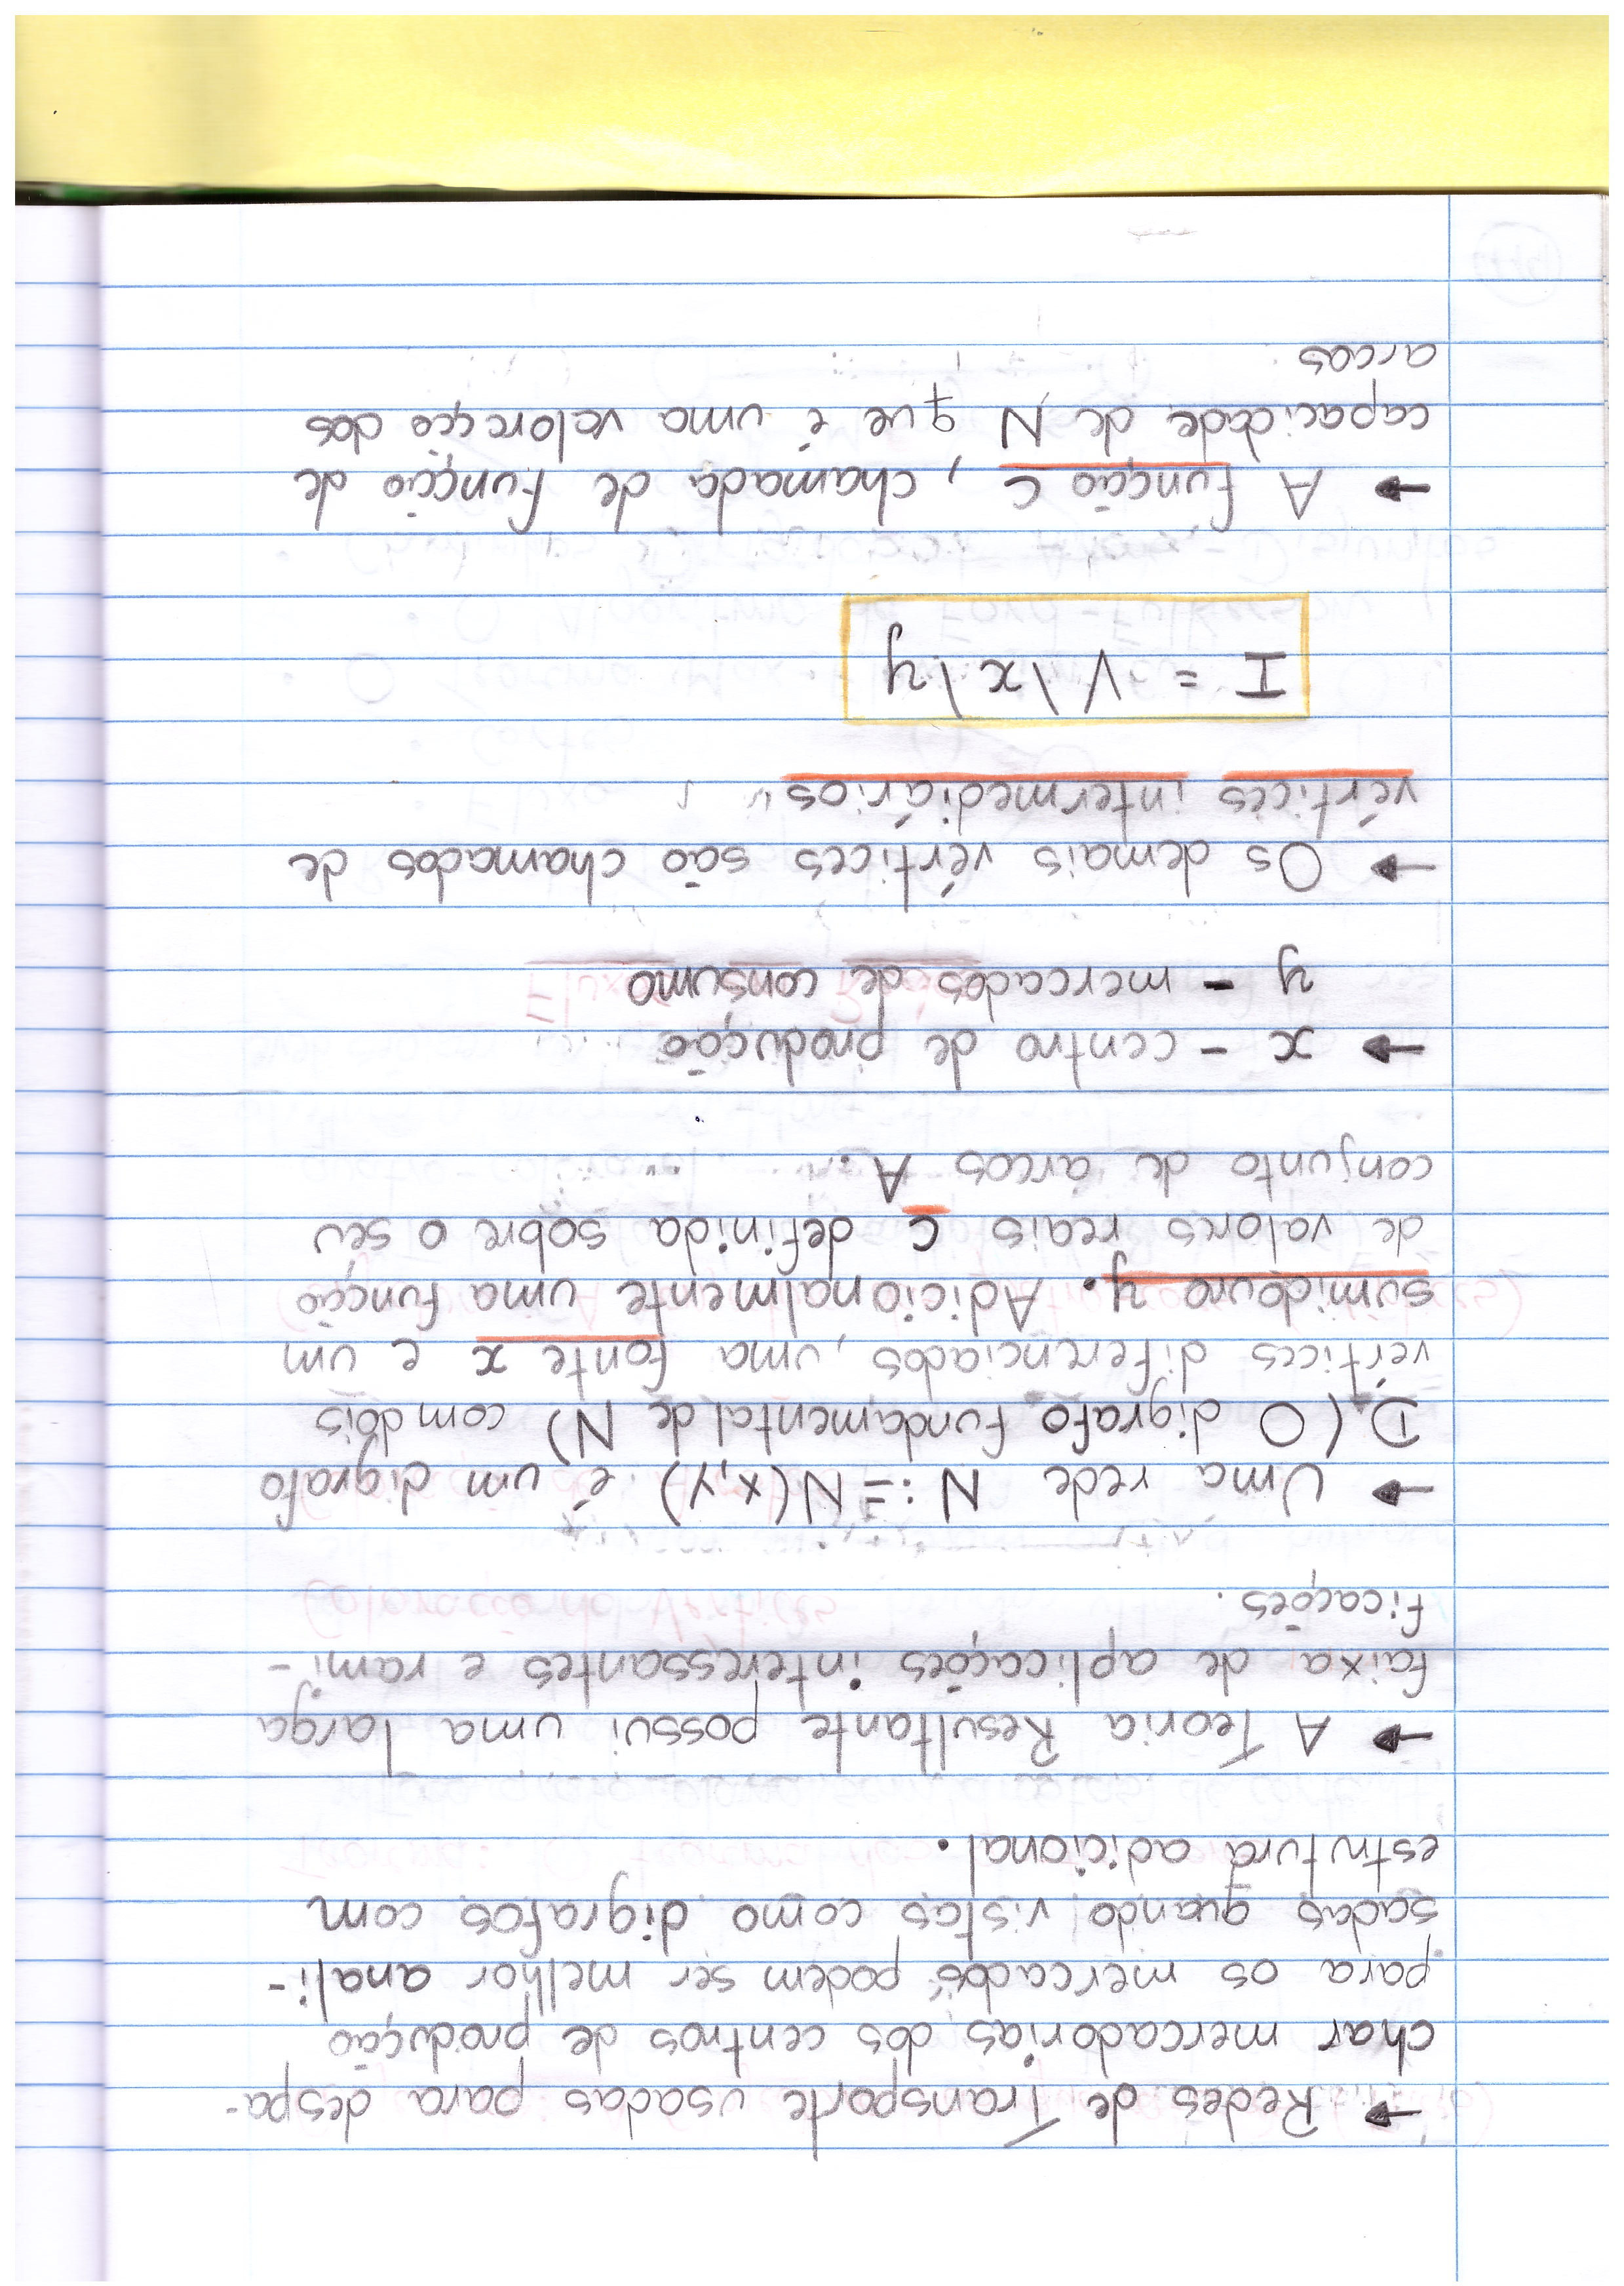 → Redes de Transporte usadas para despa-
char mercadorias dos centros de produção
para os mercados podem ser melhor anali-
sadas quando vistas como digrafos com
estrutura adicional.
→ A Teoria Resultante possui uma larga
faixa de aplicações interessantes e rami-
ficações.
→ Uma rede N := N(x,y) é um digrafo
D (O digrafo fundamental de N) com dois
vértices diferenciados, uma fonte x e um
sumidouro y. Adicionalmente uma função
de valores reais c definida sobre o seu
conjunto de arcos A.
→ x - centro de produção
y - mercados de consumo
→ Os demais vértices são chamados de
vértices intermediários
I = V \ x \ y
→ A função c, chamada de função de
capacidade de N que é uma valoração dos
arcos